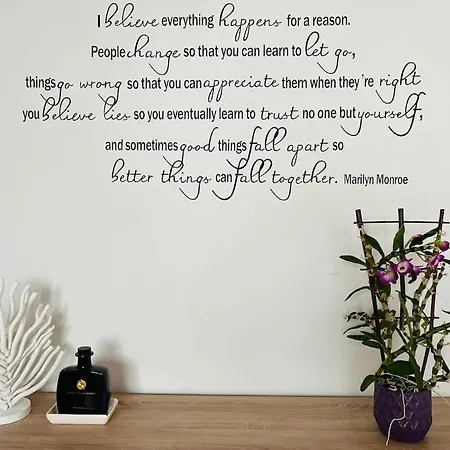 I believe everything happens for a reason.
People change so that you can learn to let go,
things go wrong so that you can appreciate them when they're right
you believe lies so you eventually learn to trust no one but yourself,
and sometimes good things fall apart so
better things can fall together. Marilyn Monroe